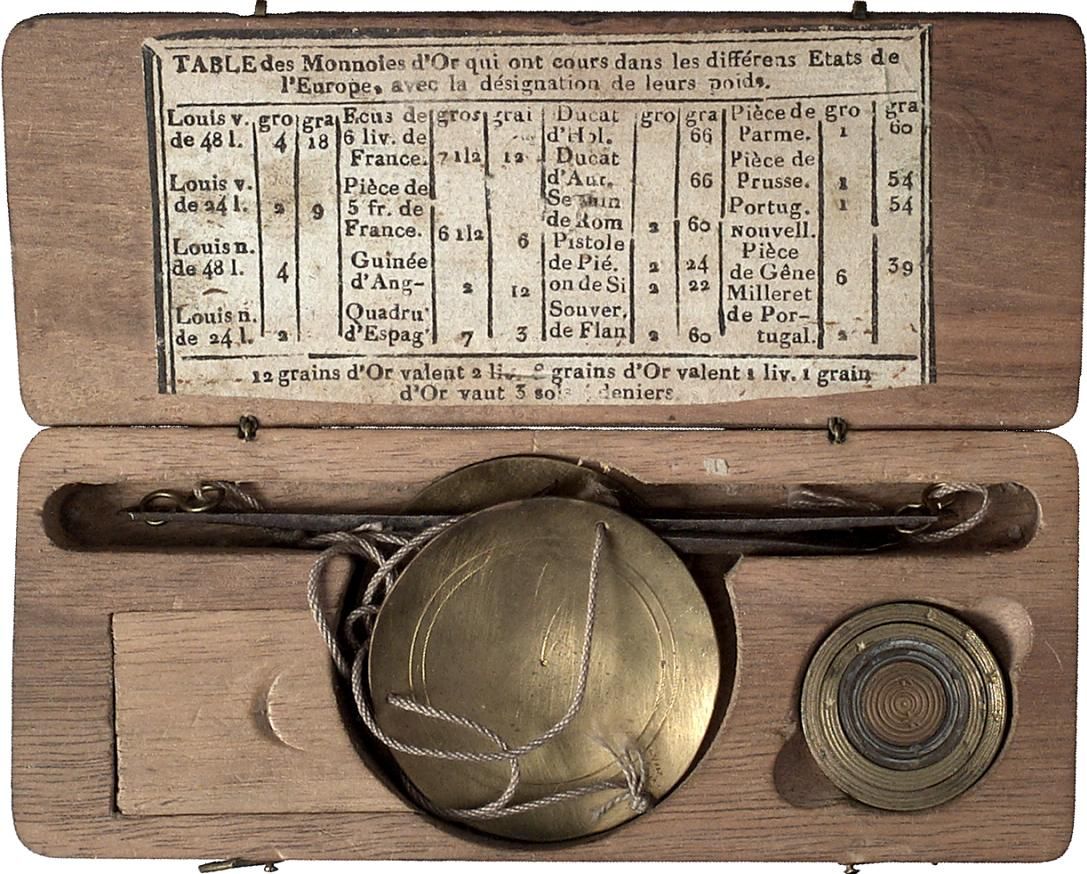 TABLE des Monnoies d'Or qui ont cours dans les différens Etats de
l'Europe, avec la désignation de leurs poids.
Louis v. gro gra
de 48 l. 4 18
Louis v.
de 24 l. 2 9
Louis n.
de 48 l. 4
Louis n.
de 24 l. 2
Ecus de gros grai
6 liv. de
France. 7 1|2 12
Pièce de
5 fr. de
France. 6 1|2 6
Guinée
d'Ang- 2 12
Quadru
d'Espag 7 3
Ducat gro gra
d'Hol. 66
Ducat
d'Aur. 66
de Rom 2 60
Pistole
de Pié. 2 24
on de Si 2 22
Souver.
de Flan 2 60
Pièce de gro gra
Parme. 1 60
Pièce de
Prusse. 1 54
Portug. 1 54
Nouvell.
Pièce
de Gêne 6 39
Milleret
de Por-
tugal. 2
12 grains d'Or valent 2 grains d'Or valent 1 liv. 1 grain
d'Or vaut 3 deniers